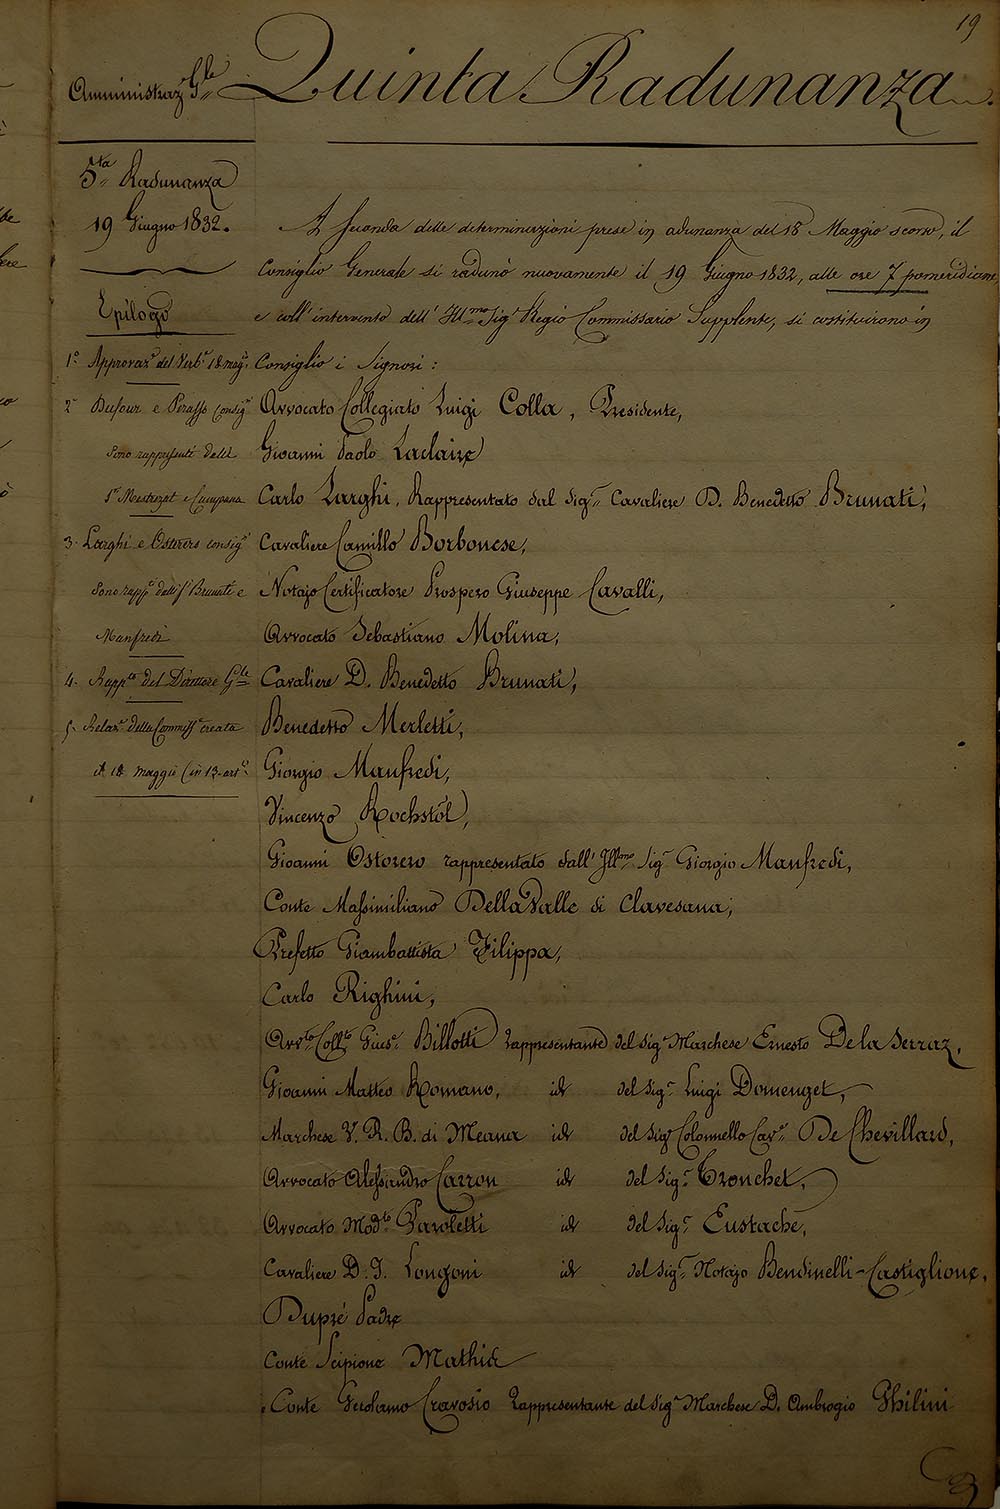 19
Amministraz. G.le Quinta Radunanza
5.ta Radunanza
19 Giugno 1832.
Epilogo
1.° Approvaz.e del Verb.e 18 mag.°
2.° Dufour e Perasso Consig.ri
Sono rappresenti dalli
S.ri Mestrezat e Campana
3. Larghi e Ostorero consig.ri
Sono rapp.ti dalli S.ri Brunati e
Manfredi
4. Rapp.to del Direttore G.le
5. Relaz.e della Commiss.e creata
il 18 maggio (in 13 art.li
A seconda delle determinazioni prese in adunanza del 18 Maggio scorso, il
Consiglio Generale si radunò nuovamente il 19 Giugno 1832, alle ore 7 pomeridiane,
e coll' intervento dell' Ill.mo Sig.r Regio Commissario Supplente, si costituirono in
Consiglio i Signori:
Avvocato Collegiato Luigi Colla, Presidente,
Gioanni Paolo Laclaire
Carlo Larghi, Rappresentato dal Sig.r Cavaliere D. Benedetto Brunati,
Cavaliere Camillo Borbonese,
Notajo Certificatore Prospero Giuseppe Cavalli,
Avvocato Sebastiano Molina,
Cavaliere D. Benedetto Brunati,
Benedetto Merletti,
Giorgio Manfredi,
Vincenzo Rochstöl,
Gioanni Ostorero rappresentato dall' Ill.mo Sig.r Giorgio Manfredi,
Conte Massimiliano Della Valle di Clavesana,
Prefetto Giambattista Filippa,
Carlo Righini,
Avv.to Coll.to Gius.e Billotti Rappresentante del Sig.r Marchese Ernesto De la Serraz,
Gioanni Matteo Romano, id del Sig.r Luigi Domenget,
Marchese V. R. B. di Meana id del Sig.r Colonnello Cav.re De Chevillard,
Avvocato Alessandro Carron id del Sig.r Tronchet,
Avvocato Mod.to Paroletti id del Sig.r Eustache,
Cavaliere D. I. Longoni id del Sig.r Notajo Bendinelli-Castiglione,
Dupré Padre
Conte Scipione Mathié
Conte Gerolamo Cravosio Rappresentante del Sig.r Marchese D. Ambrogio Ghilini